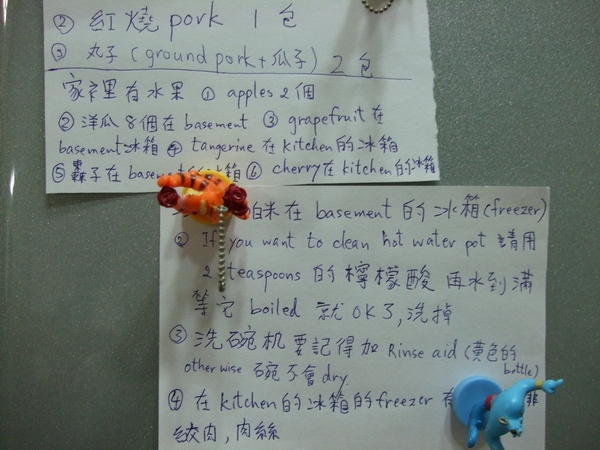 ② 紅燒 pork 1 包
③ 丸子 (ground pork + 瓜子) 2 包
家裡有水果 ① apples 2個
② 洋瓜 8個在 basement ③ grapefruit 在
basement 冰箱 ④ tangerine 在kitchen的冰箱
⑤ 子在 basement的冰箱 ⑥ cherry在kitchen的冰箱
在 basement 的冰箱 (freezer)
② If you want to clean hot water pot 請用
2 teaspoons 的檸檬酸 再水到滿
等它 boiled 就OK了,洗掉
③ 洗碗机要記得加 Rinse aid (黃色的 bottle)
otherwise 碗不會dry
④ 在 kitchen的冰箱的freezer 有
絞肉,肉絲